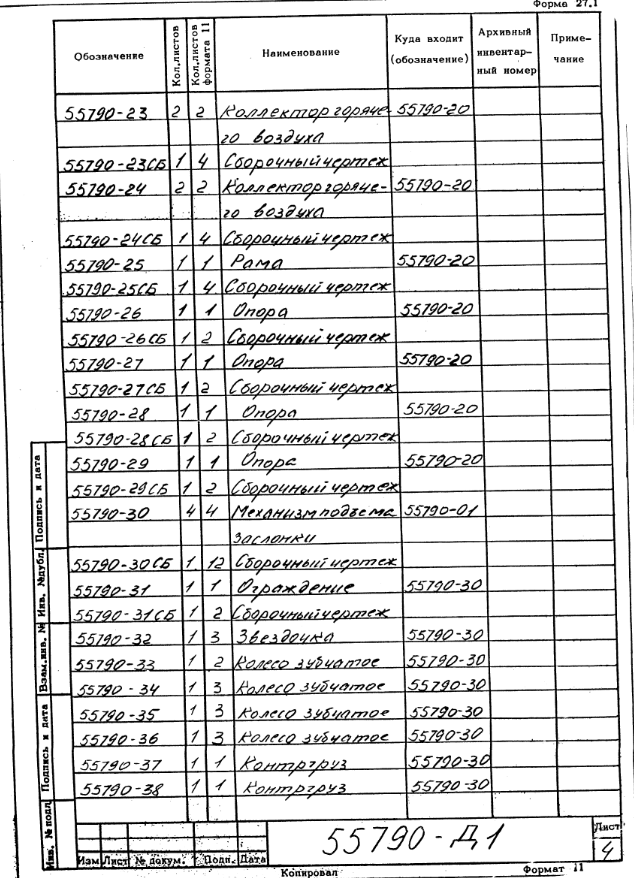 Форма 27.1
Обозначение Кол.листов Кол.листов формата 11 Наименование Куда входит (обозначение) Архивный инвентар- ный номер Приме- чание
55790-23 2 2 Коллектор горяче- 55790-20
го воздуха
55790-23СБ 1 4 Сборочный чертеж
55790-24 2 2 Коллектор горяче- 55790-20
го воздуха
55790-24СБ 1 4 Сборочный чертеж
55790-25 1 1 Рама 55790-20
55790-25СБ 1 4 Сборочный чертеж
55790-26 1 1 Опора 55790-20
55790-26СБ 1 2 Сборочный чертеж
55790-27 1 1 Опора 55790-20
55790-27СБ 1 2 Сборочный чертеж
55790-28 1 1 Опора 55790-20
55790-28СБ 1 2 Сборочный чертеж
55790-29 1 1 Опора 55790-20
55790-29СБ 1 2 Сборочный чертеж
55790-30 4 4 Механизм подъема 55790-01
заслонки
55790-30СБ 1 12 Сборочный чертеж
55790-31 1 1 Ограждение 55790-30
55790-31СБ 1 2 Сборочный чертеж
55790-32 1 3 Звездочка 55790-30
55790-33 1 2 Колесо зубчатое 55790-30
55790-34 1 3 Колесо зубчатое 55790-30
55790-35 1 3 Колесо зубчатое 55790-30
55790-36 1 3 Колесо зубчатое 55790-30
55790-37 1 1 Контргруз 55790-30
55790-38 1 1 Контргруз 55790-30
Подпись и дата
Инв. №дубл.
Взам.инв. №
Подпись и дата
Инв. №подл
Изм Лист № докум. Подп. Дата
55790-Д1
Лист
4
Копировал Формат 11